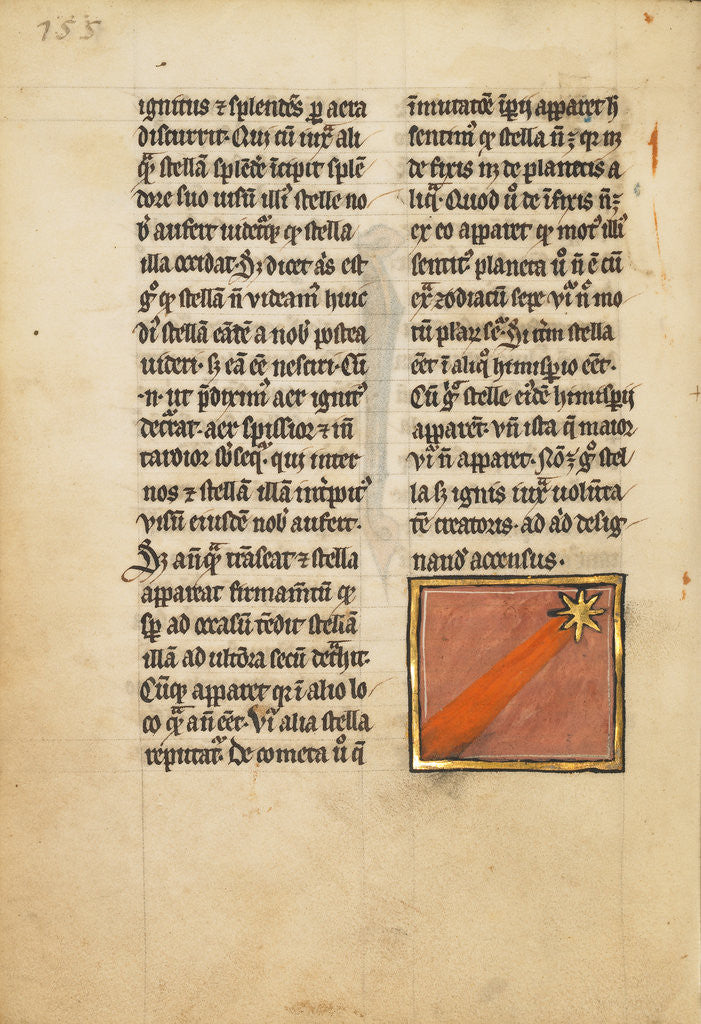 155
ignitus ⁊ splendēs ꝑ aera
discurrit. Qui cū iuxͣ ali
qͣ stellā splēdē īcipit splē
dore suo uisū illiꝰ stelle no
b̄ aufert uidetͬqꝫ ꝙ stella
illa occidat. Sꝫ dicet aꝰs est
gͦ ꝙ stellā n̄ videamꝰ huic
stellā eādē a nob̄ postea
uideri. sꝫ eā eē nesciri. Cū
.n. ut p̄diximꝰ aer ignitꝰ
aer spissior ⁊ in̄
tardior sb̄seqͬ. qui inter
nos ⁊ stellā illā
visū eiusdē nob̄ aufert.
Sꝫ an̄qͣ trāseat ⁊ stella
appareat firmam̄tū ꝙ
sꝑ ad occasū tēdit stellā
illā ad ultōra secū detͣhit.
Cūqꝫ apparet qꝛ ī alio lo
co qͣ an̄ eēt. Vn̄ alia stella
reputatͬ. De cometa uͦ q̄
īmutatōē īꝑij apparet h̄
sentimꝰ ꝙ stella n̄ ꝫ qꝛ nꝫ
de fixis nꝫ de planetis a
liqͣ. Quod uͦ de īfixis n̄ ꝫ
ex eo apparet ꝙ motꝰ illiꝰ
sentitͬ planeta uͦ n̄ ē cū
exͣ zodiacū sepe n̄ mo
tū Si itm̄ stella
eēt ī aliqͦ himisꝑio eēt.
Cū gͦ stelle eiꝰdē himisꝑij
apparēt. vn̄ ista q̄ maior
n̄ apparet. Nō ꝫ gͦ stel
la sꝫ ignis iuxͣ uolūta
tē creatoris. ad aꝰd desig
nand accensus.